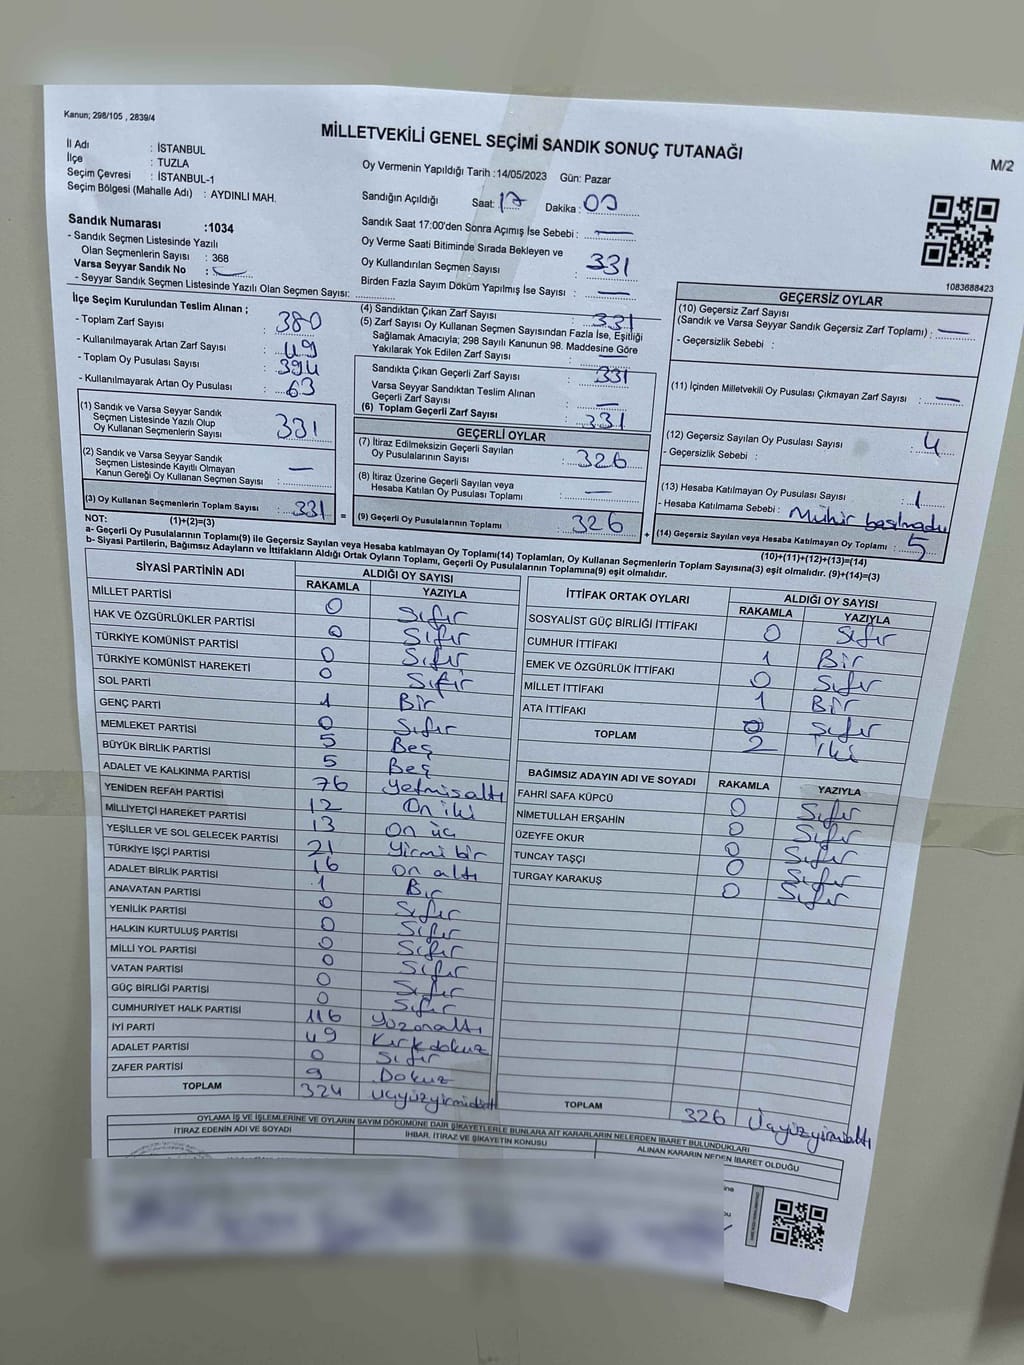 Kanun; 298/105 , 2839/4
MİLLETVEKİLİ GENEL SEÇİMİ SANDIK SONUÇ TUTANAĞI
M/2
İl Adı : İSTANBUL
İlçe : TUZLA
Seçim Çevresi : İSTANBUL-1
Seçim Bölgesi (Mahalle Adı) : AYDINLI MAH.
Oy Vermenin Yapıldığı Tarih :14/05/2023 Gün: Pazar
Sandığın Açıldığı Saat: 17 Dakika : 00
Sandık Saat 17:00'den Sonra Açımış İse Sebebi : —
Oy Verme Saati Bitiminde Sırada Bekleyen ve
Oy Kullandırılan Seçmen Sayısı : 331
Birden Fazla Sayım Döküm Yapılmış İse Sayısı : —
Sandık Numarası :1034
- Sandık Seçmen Listesinde Yazılı
Olan Seçmenlerin Sayısı : 368
Varsa Seyyar Sandık No : —
- Seyyar Sandık Seçmen Listesinde Yazılı Olan Seçmen Sayısı:
1083688423
İlçe Seçim Kurulundan Teslim Alınan ;
- Toplam Zarf Sayısı : 380
- Kullanılmayarak Artan Zarf Sayısı : 49
- Toplam Oy Pusulası Sayısı : 394
- Kullanılmayarak Artan Oy Pusulası : 63
(1) Sandık ve Varsa Seyyar Sandık
Seçmen Listesinde Yazılı Olup
Oy Kullanan Seçmenlerin Sayısı : 331
(2) Sandık ve Varsa Seyyar Sandık
Seçmen Listesinde Kayıtlı Olmayan
Kanun Gereği Oy Kullanan Seçmen Sayısı : —
(3) Oy Kullanan Seçmenlerin Toplam Sayısı : 331
(1)+(2)=(3)
(4) Sandıktan Çıkan Zarf Sayısı : 331
(5) Zarf Sayısı Oy Kullanan Seçmen Sayısından Fazla İse, Eşitliği
Sağlamak Amacıyla; 298 Sayılı Kanunun 98. Maddesine Göre
Yakılarak Yok Edilen Zarf Sayısı : —
Sandıkta Çıkan Geçerli Zarf Sayısı : 331
Varsa Seyyar Sandıktan Teslim Alınan
Geçerli Zarf Sayısı : —
(6) Toplam Geçerli Zarf Sayısı : 331
GEÇERLİ OYLAR
(7) İtiraz Edilmeksizin Geçerli Sayılan
Oy Pusulalarının Sayısı : 326
(8) İtiraz Üzerine Geçerli Sayılan veya
Hesaba Katılan Oy Pusulası Toplamı : —
= (9) Geçerli Oy Pusulalarının Toplamı : 326 +
GEÇERSİZ OYLAR
(10) Geçersiz Zarf Sayısı
(Sandık ve Varsa Seyyar Sandık Geçersiz Zarf Toplamı) : —
- Geçersizlik Sebebi :
(11) İçinden Milletvekili Oy Pusulası Çıkmayan Zarf Sayısı : —
(12) Geçersiz Sayılan Oy Pusulası Sayısı : 4
- Geçersizlik Sebebi :
(13) Hesaba Katılmayan Oy Pusulası Sayısı : 1
- Hesaba Katılmama Sebebi : Mühür basılmadı
(14) Geçersiz Sayılan veya Hesaba Katılmayan Oy Toplamı : 5
(10)+(11)+(12)+(13)=(14)
NOT:
a- Geçerli Oy Pusulalarının Toplamı(9) ile Geçersiz Sayılan veya Hesaba katılmayan Oy Toplamı(14) Toplamları, Oy Kullanan Seçmenlerin Toplam Sayısına(3) eşit olmalıdır. (9)+(14)=(3)
b- Siyasi Partilerin, Bağımsız Adayların ve İttifakların Aldığı Ortak Oyların Toplamı, Geçerli Oy Pusulalarının Toplamına(9) eşit olmalıdır.
SİYASİ PARTİNİN ADI ALDIĞI OY SAYISI
RAKAMLA YAZIYLA
MİLLET PARTİSİ 0 Sıfır
HAK VE ÖZGÜRLÜKLER PARTİSİ 0 Sıfır
TÜRKİYE KOMÜNİST PARTİSİ 0 Sıfır
TÜRKİYE KOMÜNİST HAREKETİ 0 Sıfır
SOL PARTİ 1 Bir
GENÇ PARTİ 0 Sıfır
MEMLEKET PARTİSİ 5 Beş
BÜYÜK BİRLİK PARTİSİ 5 Beş
ADALET VE KALKINMA PARTİSİ 76 Yetmişaltı
YENİDEN REFAH PARTİSİ 12 On iki
MİLLİYETÇİ HAREKET PARTİSİ 13 On üç
YEŞİLLER VE SOL GELECEK PARTİSİ 21 Yirmi bir
TÜRKİYE İŞÇİ PARTİSİ 16 On altı
ADALET BİRLİK PARTİSİ 1 Bir
ANAVATAN PARTİSİ 0 Sıfır
YENİLİK PARTİSİ 0 Sıfır
HALKIN KURTULUŞ PARTİSİ 0 Sıfır
MİLLİ YOL PARTİSİ 0 Sıfır
VATAN PARTİSİ 0 Sıfır
GÜÇ BİRLİĞİ PARTİSİ 0 Sıfır
CUMHURİYET HALK PARTİSİ 116 Yüzonaltı
İYİ PARTİ 49 Kırkdokuz
ADALET PARTİSİ 0 Sıfır
ZAFER PARTİSİ 9 Dokuz
TOPLAM 324 Üçyüzyirmidört
İTTİFAK ORTAK OYLARI ALDIĞI OY SAYISI
RAKAMLA YAZIYLA
SOSYALİST GÜÇ BİRLİĞİ İTTİFAKI 0 Sıfır
CUMHUR İTTİFAKI 1 Bir
EMEK VE ÖZGÜRLÜK İTTİFAKI 0 Sıfır
MİLLET İTTİFAKI 1 Bir
ATA İTTİFAKI 0 Sıfır
TOPLAM 2 İki
BAĞIMSIZ ADAYIN ADI VE SOYADI RAKAMLA YAZIYLA
FAHRİ SAFA KÜPCÜ 0 Sıfır
NİMETULLAH ERŞAHİN 0 Sıfır
ÜZEYFE OKUR 0 Sıfır
TUNCAY TAŞÇI 0 Sıfır
TURGAY KARAKUŞ 0 Sıfır
TOPLAM 326 Üçyüzyirmialtı
OYLAMA İŞ VE İŞLEMLERİNE VE OYLARIN SAYIM DÖKÜMÜNE DAİR ŞİKAYETLERLE BUNLARA AİT KARARLARIN NELERDEN İBARET BULUNDUKLARI
İTİRAZ EDENİN ADI VE SOYADI İHBAR, İTİRAZ VE ŞİKAYETİN KONUSU ALINAN KARARIN NEDEN İBARET OLDUĞU